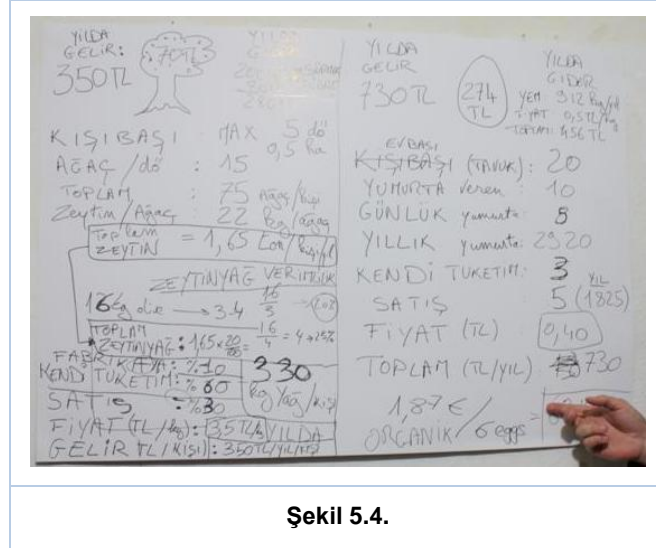 YILDA
GELİR:
350TL
70TL
KIŞIBAŞI : MAX 5 dö
0,5 ha
AĞAÇ/dö : 15
TOPLAM : 75 Ağaç/kişi
Zeytin/Ağaç : 22 kg/ağaç
Toplam
ZEYTİN = 1,65 ton/kişi/yıl
ZEYTİNYAĞ VERİMLİLİK
16kg die → 3-4 16/3 → 20%
TOPLAM
ZEYTİNYAĞ: 1,65 x 20/100 = 16/4 = 4 → 25%
FABRİKAYA: %10
KENDİ TÜKETİM: %60
330
kg Yağ/kişi
SATIŞ : %30
FİYAT (TL/kg): 3,5TL/kg YILDA
GELİR TL/KİŞİ): 350TL/YIL/KİŞİ
YILDA
GELİR
730TL
274
TL
YILDA
GİDER
YEM: 912 kg/yıl
FİYAT 0,5TL/kg
TOPLAM: 456 TL
EVBAŞI
KIŞIBAŞI (TAVUK): 20
YUMURTA veren: 10
GÜNLÜK yumurta: 8
YILLIK yumurta: 2920
KENDİ TUKETIM: 3
YIL
SATIŞ 5 (1825)
FİYAT (TL) 0,40
TOPLAM (TL/YIL) 730
1,87 € /
ORGANIK/6 eggs =
Şekil 5.4.